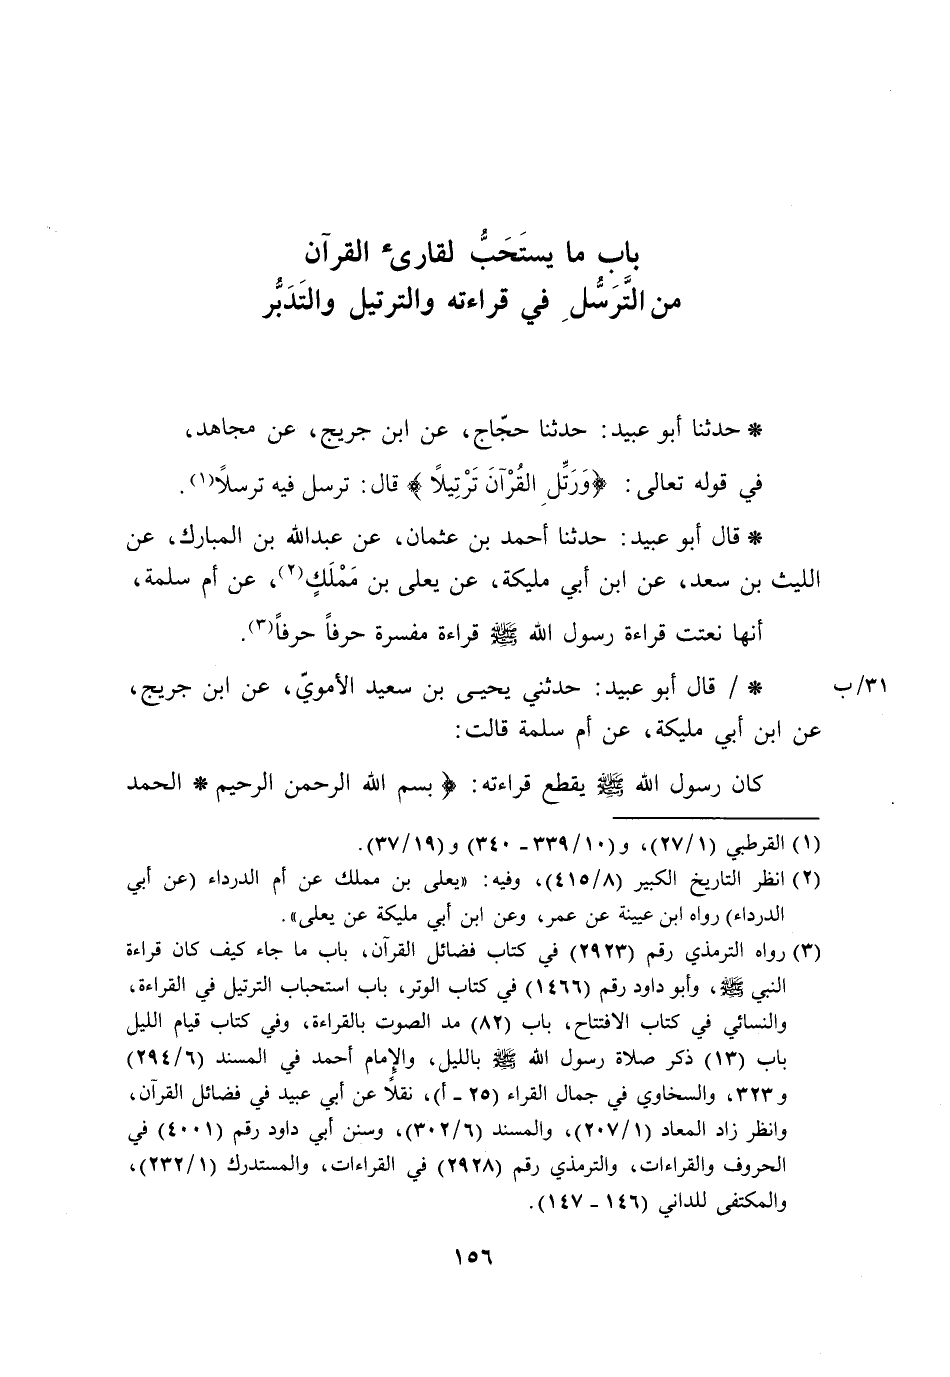 باب ما يستَحَبُّ لقارىء القرآن
من التَّرَسُّلِ في قراءته والترتيل والتَدَبُّر
* حدثنا أبو عبيد: حدثنا حجّاج، عن ابن جريج، عن مجاهد،
في قوله تعالى: ﴿وَرَتِّلِ القُرْآنَ تَرْتِيلاً﴾ قال: ترسل فيه ترسلاً(١).
* قال أبو عبيد: حدثنا أحمد بن عثمان، عن عبدالله بن المبارك، عن
الليث بن سعد، عن ابن أبي مليكة، عن يعلى بن مَمْلَكٍ(٢)، عن أم سلمة،
أنها نعتت قراءة رسول الله ﷺ قراءة مفسرة حرفاً حرفاً(٣).
٣١/ب * / قال أبو عبيد: حدثني يحيى بن سعيد الأمويّ، عن ابن جريج،
عن ابن أبي مليكة، عن أم سلمة قالت:
كان رسول الله ﷺ يقطع قراءته: ﴿ بسم الله الرحمن الرحيم * الحمد
(١) القرطبي (٢٧/١)، و(٣٣٩/١٠ ـ ٣٤٠) و(٣٧/١٩).
(٢) انظر التاريخ الكبير (٤١٥/٨)، وفيه: «يعلى بن مملك عن أم الدرداء (عن أبي
الدرداء) رواه ابن عيينة عن عمر، وعن ابن أبي مليكة عن يعلى».
(٣) رواه الترمذي رقم (٢٩٢٣) في كتاب فضائل القرآن، باب ما جاء كيف كان قراءة
النبي ﷺ، وأبو داود رقم (١٤٦٦) في كتاب الوتر، باب استحباب الترتيل في القراءة،
والنسائي في كتاب الافتتاح، باب (٨٢) مد الصوت بالقراءة، وفي كتاب قيام الليل
باب (١٣) ذكر صلاة رسول الله ﷺ بالليل، والإمام أحمد في المسند (٢٩٤/٦)
و٣٢٣، والسخاوي في جمال القراء (٢٥ ـ أ)، نقلاً عن أبي عبيد في فضائل القرآن،
وانظر زاد المعاد (٢٠٧/١)، والمسند (٣٠٢/٦)، وسنن أبي داود رقم (٤٠٠١) في
الحروف والقراءات، والترمذي رقم (٢٩٢٨) في القراءات، والمستدرك (٢٣٢/١)،
والمكتفى للداني (١٤٦ ـ ١٤٧).
١٥٦